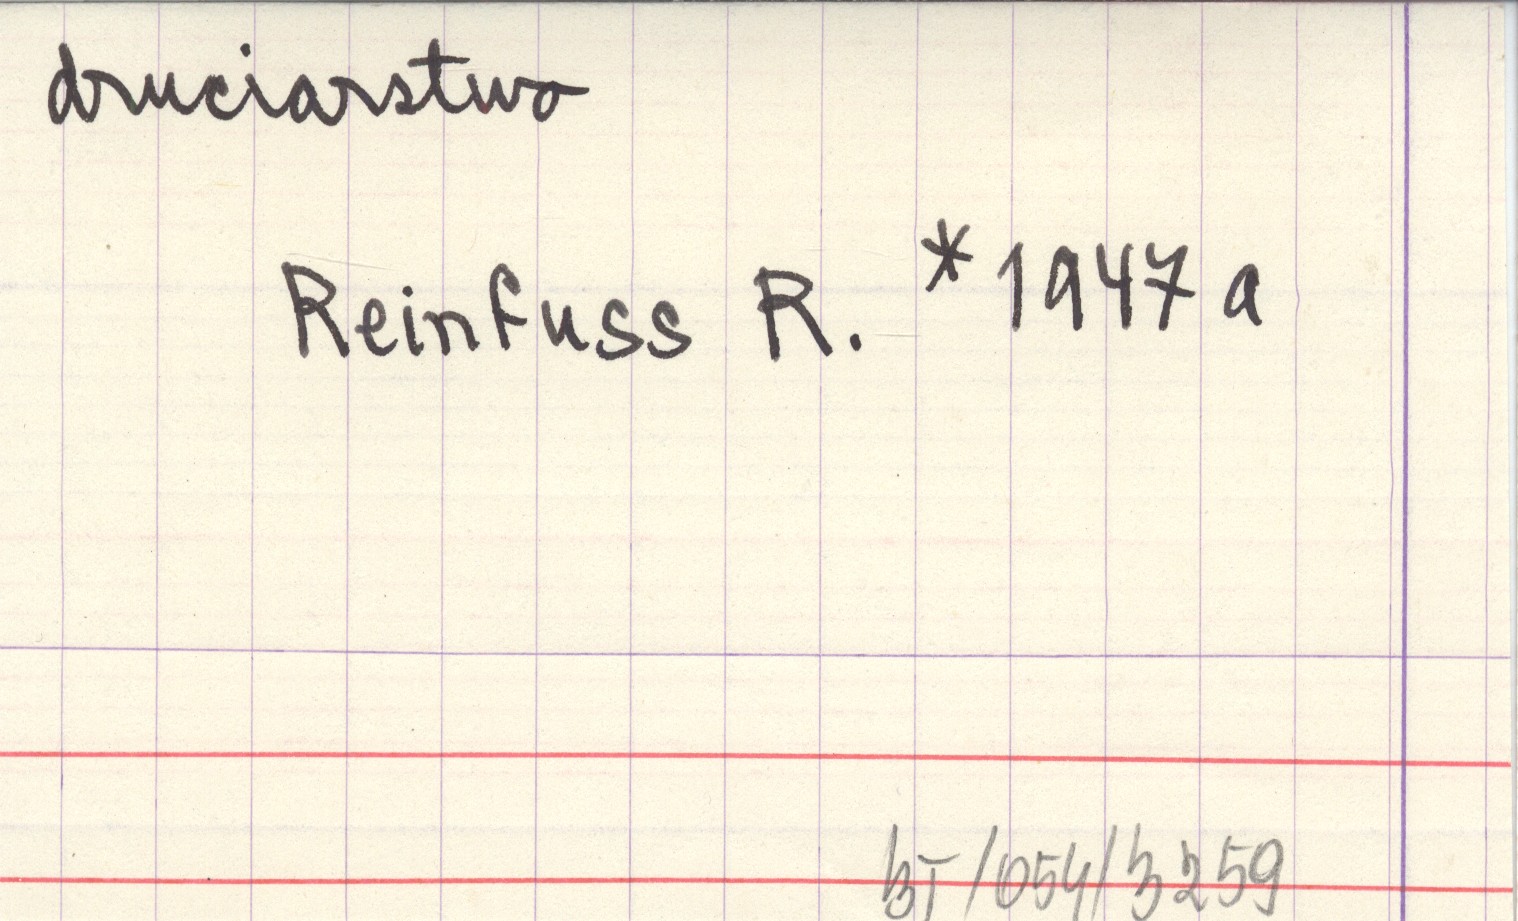 druciarstwo
Reinfuss R. *1947a
/054/3259